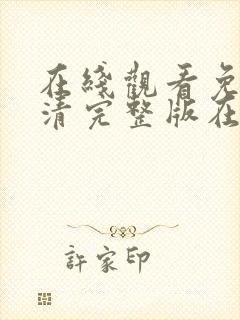 在綫觀看免
清完整版在
許家印